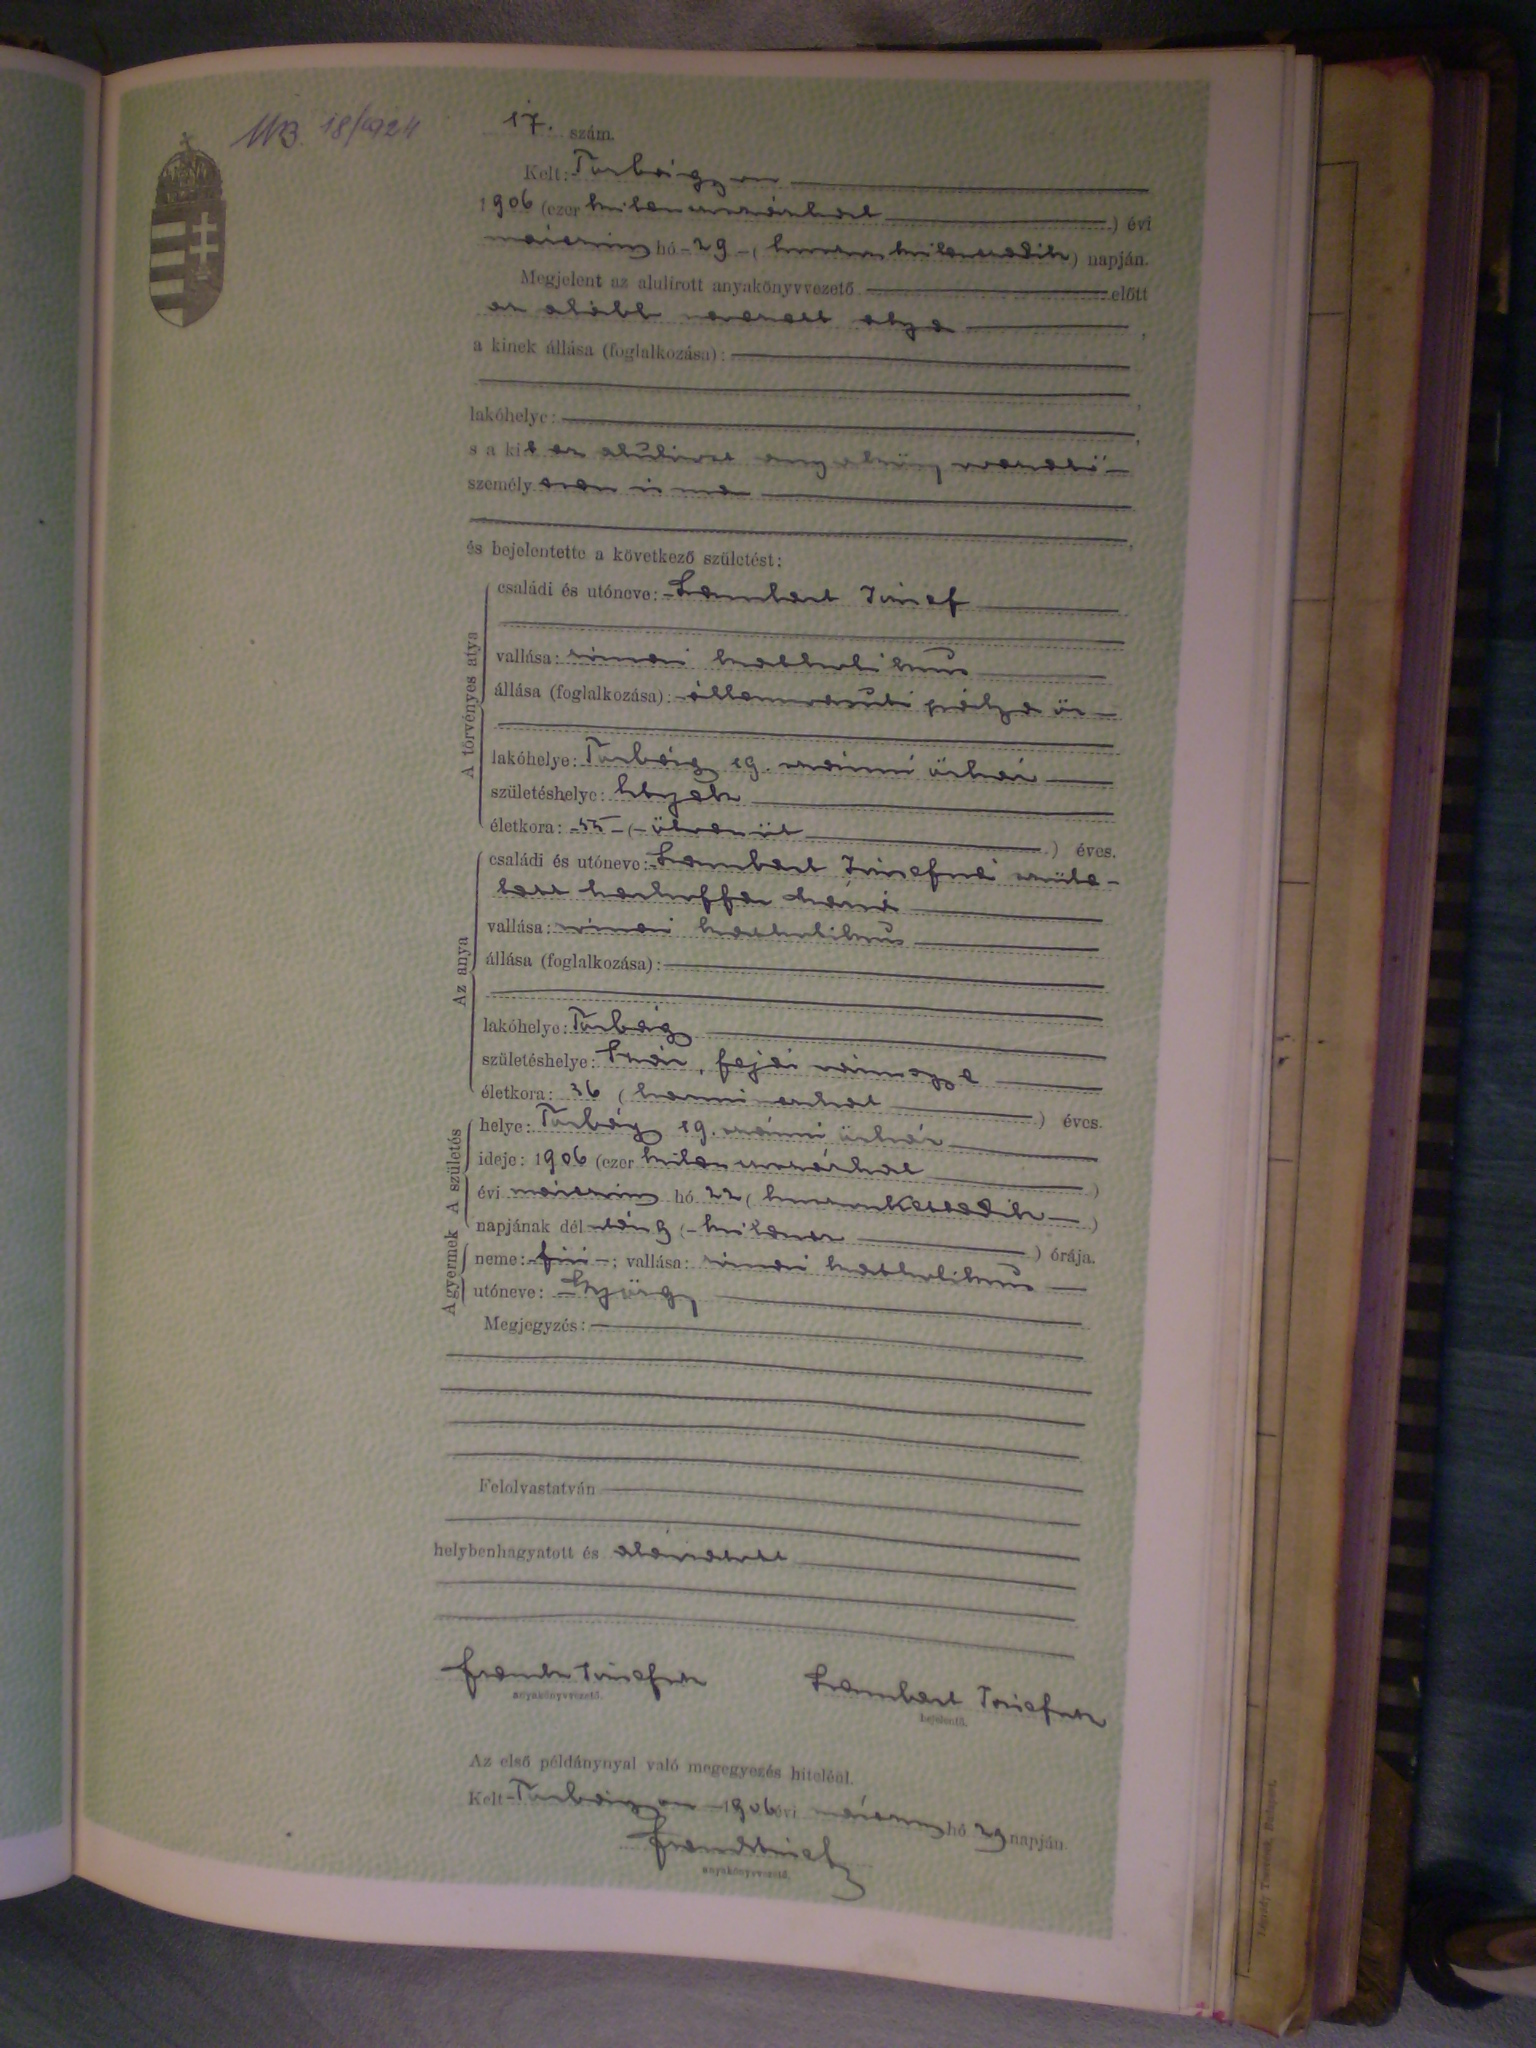 18/924
17. szám.
Kelt: Torbágyon
1906 (ezer kilenczszázhat ) évi
márczius hó - 29 - ( huszonkilenczedik ) napján.
Megjelent az alulírott anyakönyvvezető előtt
az alább nevezett atya ,
a kinek állása (foglalkozása):
lakóhelye: ,
s a kit az alulirott anyakönyvvezető
személyesen ismer
és bejelentette a következő születést:
A törvényes atya
családi és utóneve: Lambert József
vallása: római katholikus
állása (foglalkozása): államvasuti pálya őr
lakóhelye: Torbágy 19. számú őrház
születéshelye: Etyek
életkora: - 55 - ( - ötvenöt ) éves.
Az anya
családi és utóneve: Lambert Józsefné szüle-
tett Mária
vallása: római katholikus
állása (foglalkozása):
lakóhelye: Torbágy
születéshelye: fejér vármegye
életkora: 36 ( harminczhat ) éves.
A születés
helye: Torbágy 19. számú őrház
ideje: 1906 (ezer kilenczszázhat )
évi márczius hó 22 ( huszonkettedik )
napjának dél után 9 ( - kilencz ) órája.
A gyermek
neme: - fiú - ; vallása: római katholikus
utóneve: György
Megjegyzés:
Felolvastatván
helybenhagyatott és aláiratott
József sk
anyakönyvvezető.
Lambert József sk
bejelentő.
Az első példánynyal való megegyezés hiteléül.
Kelt - Torbágyon - 1906 évi márczius hó 29 napján.
anyakönyvvezető.